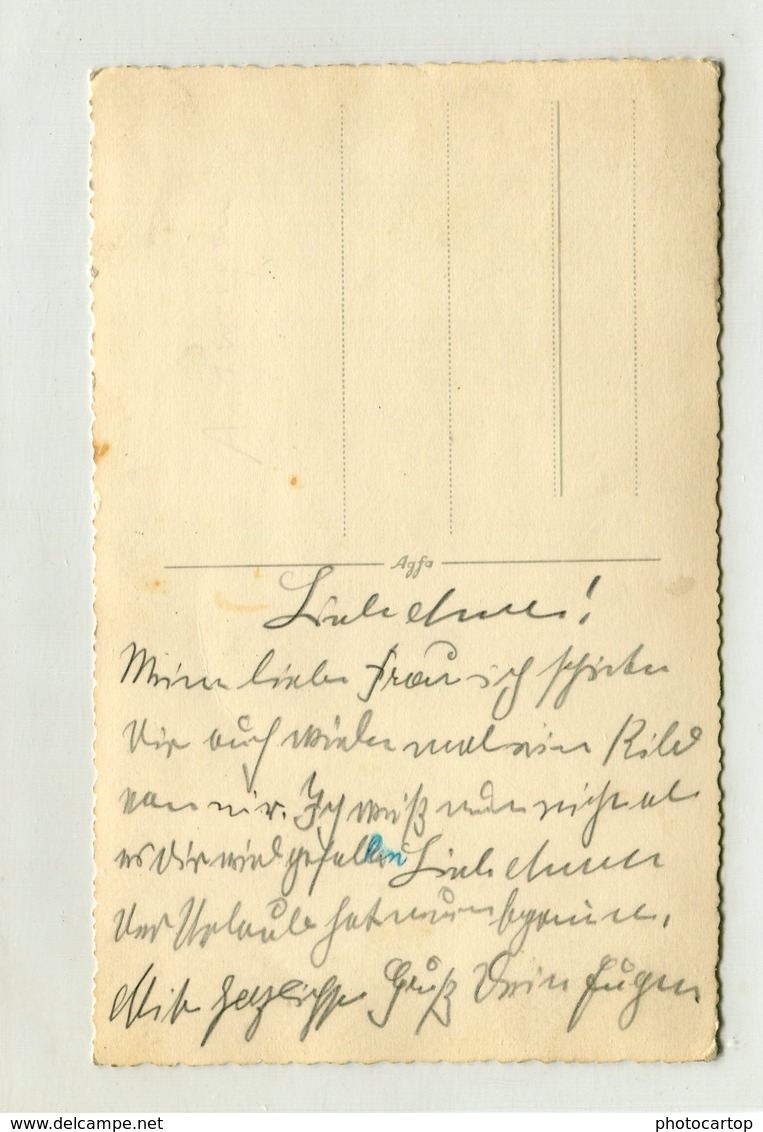 Agfa
Liebe Anna!
Meine liebe Frau ich schicke
Dir auch wieder mal ein Bild
von mir. Ich weiß nicht ob
es Dir wird gefallen Liebe Anna
Der Urlaub hat nun begonnen.
Mit herzlichem Gruß Dein Eugen
www.delcampe.net
photocartop